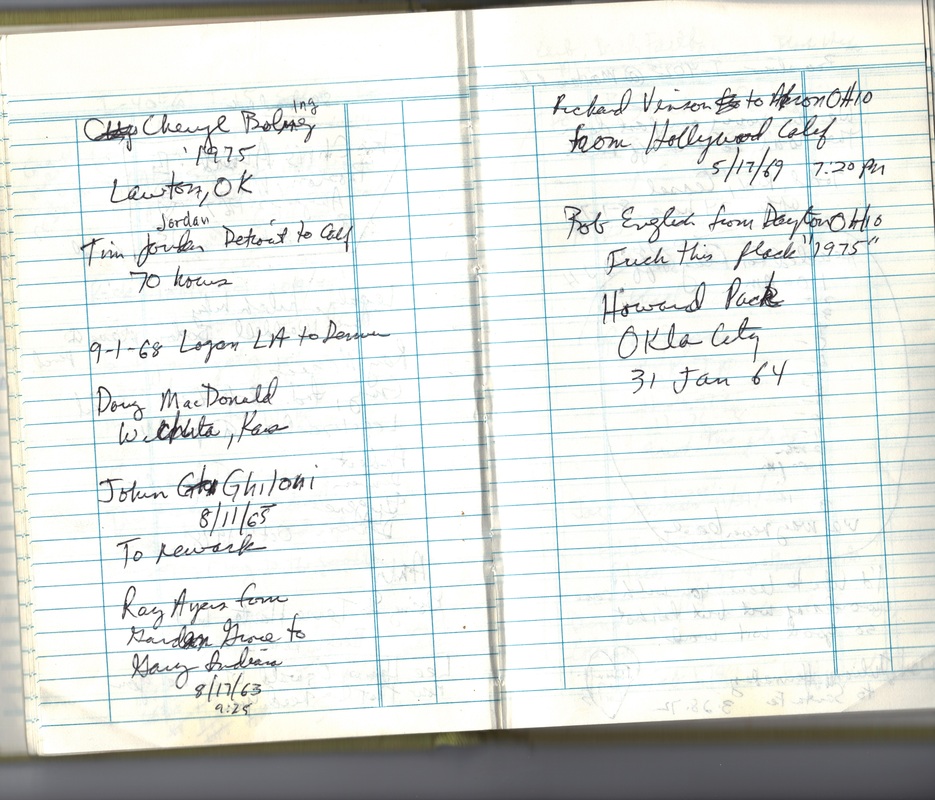 Cheryl Boling
ing
1975
Lawton, OK
Jordan
Tim Jordan Detroit to Calf
70 hours
9-1-68 Logan LA to Denver
Doug MacDonald
Wichita, Kans
John Ghiloni
8/11/65
To Newark
Ray Ayers from
Garden Grove to
Gary Indiana
8/17/63
9:25
Richard Vinson to Akron OHIO
from Hollywood Calif
5/17/69 7:20 PM
Bob English from Dayton OHIO
Fuck this place "1975"
Howard Pack
OKla City
31 Jan 64